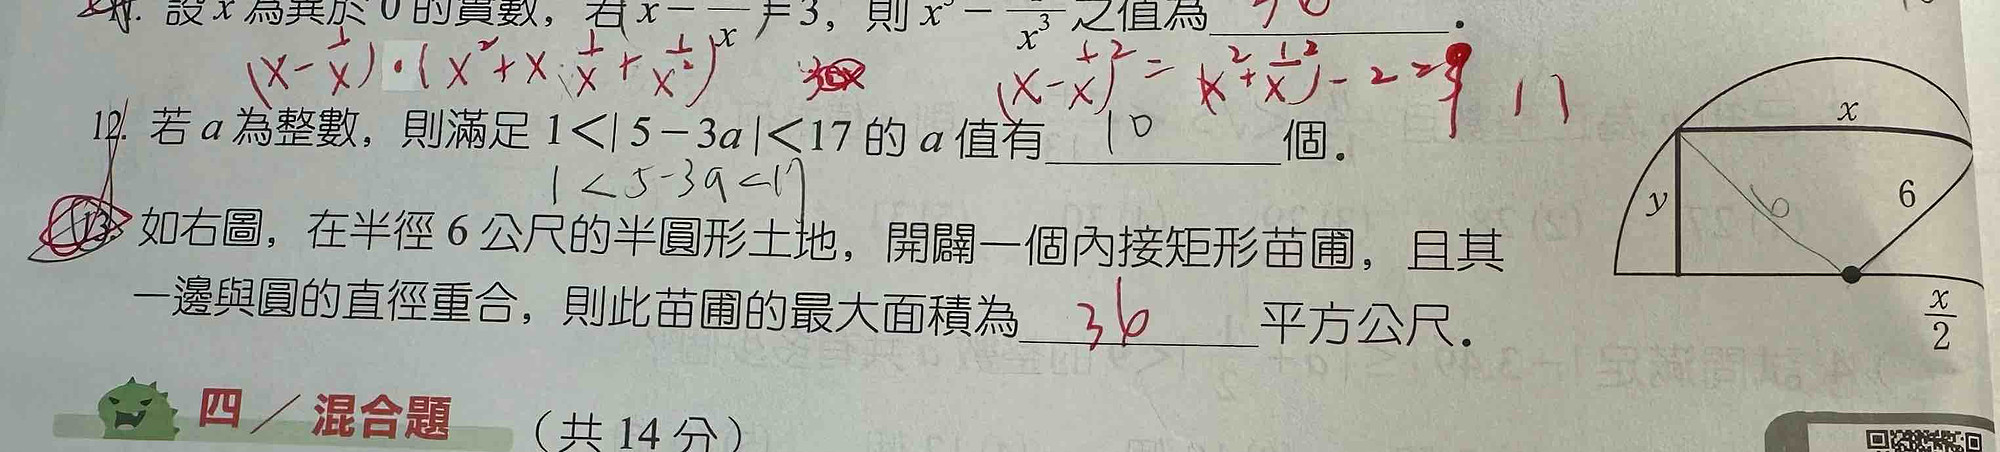 設 x 為異於 0 的實數，若 x − — x = 3，則 x³ − — x³ 之值為 36 .
(x - 1/x) · (x² + x · 1/x + 1/x²)
(x - 1/x)² = (x² + 1/x²) - 2 = 9 11
12. 若 a 為整數，則滿足 1<| 5−3a |<17 的 a 值有 10 個．
1 < 5-3a < 17
13. 如右圖，在半徑 6 公尺的半圓形土地，開闢一個內接矩形苗圃，且其
一邊與圓的直徑重合，則此苗圃的最大面積為 36 平方公尺．
x
y
6
6
x/2
四／混合題 （共 14 分）